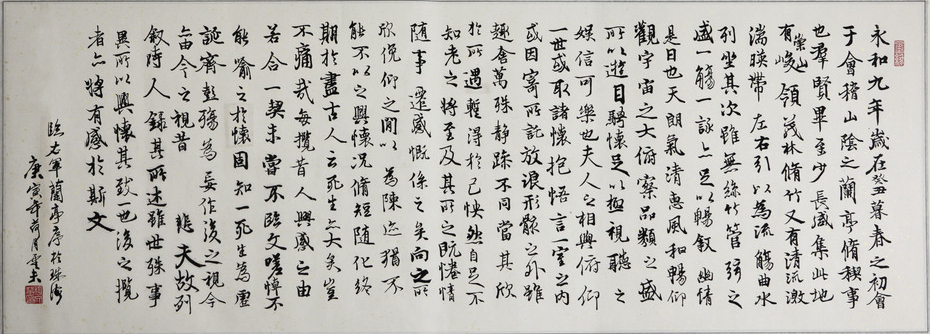 永和九年歲在癸丑暮春之初會
于會稽山陰之蘭亭脩稧事
也羣賢畢至少長咸集此地
有崇山峻領茂林脩竹又有清流激
湍暎帶左右引以為流觴曲水
列坐其次雖無絲竹管弦之
盛一觴一詠亦足以暢敘幽情
是日也天朗氣清惠風和暢仰
觀宇宙之大俯察品類之盛
所以遊目騁懷足以極視聽之
娛信可樂也夫人之相與俯仰
一世或取諸懷抱悟言一室之內
或因寄所託放浪形骸之外雖
趣舍萬殊靜躁不同當其欣
於所遇暫得於己怏然自足不
知老之將至及其所之既惓情
隨事遷感慨係之矣向之所
欣俛仰之間以為陳迹猶不
能不以之興懷況脩短隨化終
期於盡古人云死生亦大矣豈
不痛哉每攬昔人興感之由
若合一契未嘗不臨文嗟悼不
能喻之於懷固知一死生為虛
誕齊彭殤為妄作後之視今
亦由今之視昔悲夫故列
敘時人錄其所述雖世殊事
異所以興懷其致一也後之攬
者亦將有感於斯文
臨右軍蘭亭序於珠海
庚寅年荷月